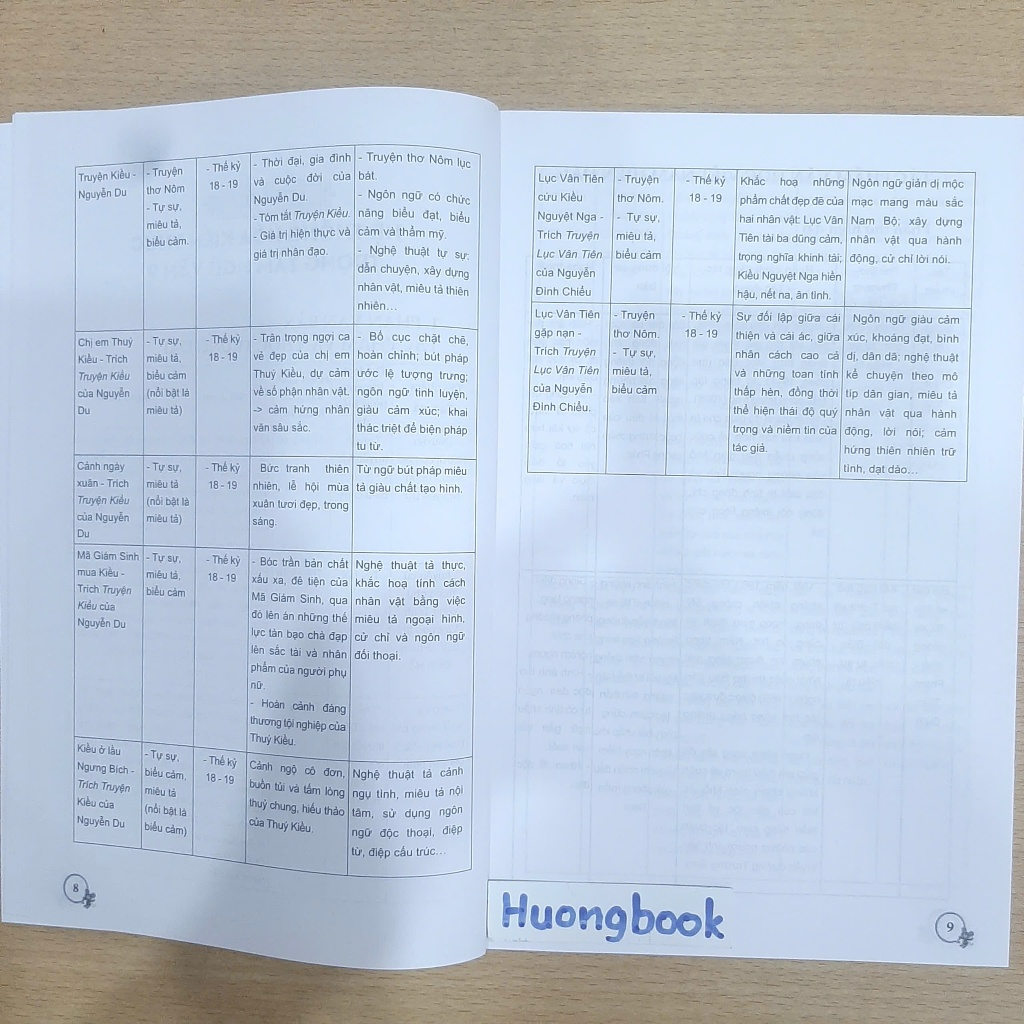 Truyện Kiều -
Nguyễn Du
- Truyện
thơ Nôm
- Tự sự,
miêu tả,
biểu cảm.
- Thế kỷ
18 - 19
- Thời đại, gia đình
và cuộc đời của
Nguyễn Du.
- Tóm tắt Truyện Kiều.
- Giá trị hiện thực và
giá trị nhân đạo.
- Truyện thơ Nôm lục
bát.
- Ngôn ngữ có chức
năng biểu đạt, biểu
cảm và thẩm mỹ.
- Nghệ thuật tự sự:
dẫn chuyện, xây dựng
nhân vật, miêu tả thiên
nhiên...
Chị em Thuý
Kiều - Trích
Truyện Kiều
của Nguyễn
Du
- Tự sự,
miêu tả,
biểu cảm
(nổi bật là
miêu tả)
- Thế kỷ
18 - 19
- Trân trọng ngợi ca
vẻ đẹp của chị em
Thuý Kiều, dự cảm
về số phận nhân vật.
-> cảm hứng nhân
văn sâu sắc.
- Bố cục chặt chẽ,
hoàn chỉnh; bút pháp
ước lệ tượng trưng;
ngôn ngữ tinh luyện,
giàu cảm xúc; khai
thác triệt để biện pháp
tu từ.
Cảnh ngày
xuân - Trích
Truyện Kiều
của Nguyễn
Du
- Tự sự,
miêu tả
(nổi bật là
miêu tả)
- Thế kỷ
18 - 19
Bức tranh thiên
nhiên, lễ hội mùa
xuân tươi đẹp, trong
sáng.
Từ ngữ bút pháp miêu
tả giàu chất tạo hình.
Mã Giám Sinh
mua Kiều -
Trích Truyện
Kiều của
Nguyễn Du
- Tự sự,
miêu tả,
biểu cảm
- Thế kỷ
18 - 19
- Bóc trần bản chất
xấu xa, đê tiện của
Mã Giám Sinh, qua
đó lên án những thế
lực tàn bạo chà đạp
lên sắc tài và nhân
phẩm của người phụ
nữ.
- Hoàn cảnh đáng
thương tội nghiệp của
Thuý Kiều.
Nghệ thuật tả thực,
khắc hoạ tính cách
nhân vật bằng việc
miêu tả ngoại hình,
cử chỉ và ngôn ngữ
đối thoại.
Kiều ở lầu
Ngưng Bích -
Trích Truyện
Kiều của
Nguyễn Du
- Tự sự,
biểu cảm,
miêu tả
(nổi bật là
biểu cảm)
- Thế kỷ
18 - 19
Cảnh ngộ cô đơn,
buồn tủi và tấm lòng
thuỷ chung, hiếu thảo
của Thuý Kiều.
Nghệ thuật tả cảnh
ngụ tình, miêu tả nội
tâm, sử dụng ngôn
ngữ độc thoại, điệp
từ, điệp cấu trúc...
8
Lục Vân Tiên
cứu Kiều
Nguyệt Nga -
Trích Truyện
Lục Vân Tiên
của Nguyễn
Đình Chiểu
- Truyện
thơ Nôm.
- Tự sự,
miêu tả,
biểu cảm
- Thế kỷ
18 - 19
Khắc hoạ những
phẩm chất đẹp đẽ của
hai nhân vật: Lục Vân
Tiên tài ba dũng cảm,
trọng nghĩa khinh tài;
Kiều Nguyệt Nga hiền
hậu, nết na, ân tình.
Ngôn ngữ giản dị mộc
mạc mang màu sắc
Nam Bộ; xây dựng
nhân vật qua hành
động, cử chỉ lời nói.
Lục Vân Tiên
gặp nạn -
Trích Truyện
Lục Vân Tiên
của Nguyễn
Đình Chiểu.
- Truyện
thơ Nôm.
- Tự sự,
miêu tả,
biểu cảm
- Thế kỷ
18 - 19
Sự đối lập giữa cái
thiện và cái ác, giữa
nhân cách cao cả
và những toan tính
thấp hèn, đồng thời
thể hiện thái độ quý
trọng và niềm tin của
tác giả.
Ngôn ngữ giàu cảm
xúc, khoáng đạt, bình
dị, dân dã; nghệ thuật
kể chuyện theo mô
típ dân gian, miêu tả
nhân vật qua hành
động, lời nói; cảm
hứng thiên nhiên trữ
tình, dạt dào...
9
Huongbook